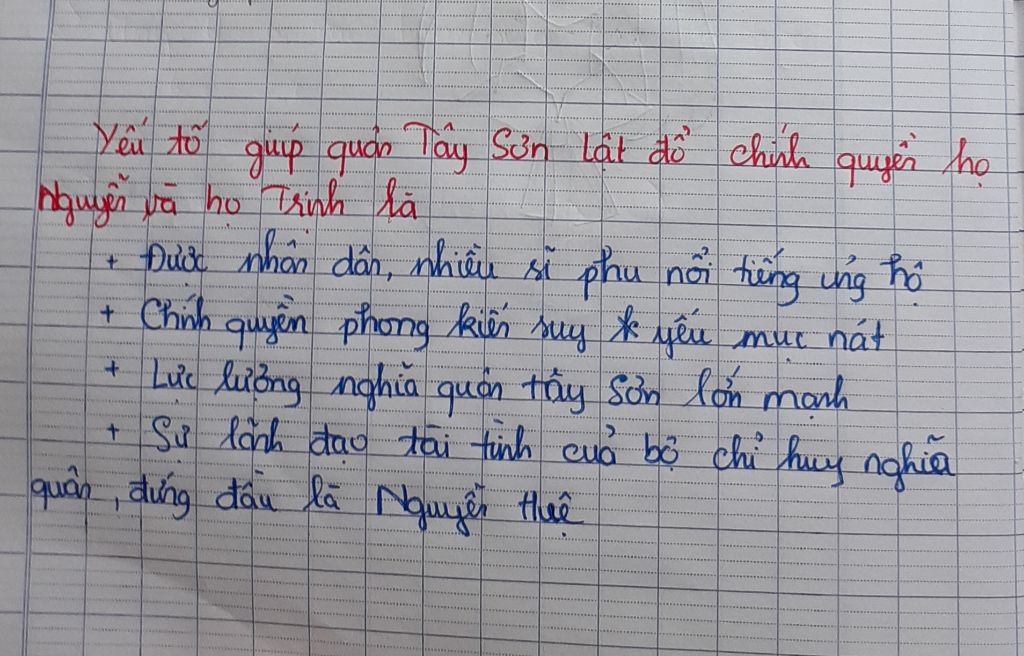 Yếu tố giúp quân Tây Sơn lật đổ chính quyền họ
Nguyễn và họ Trịnh là
+ Được nhân dân, nhiều sĩ phu nổi tiếng ủng hộ
+ Chính quyền phong kiến suy yếu mục nát
+ Lực lượng nghĩa quân tây Sơn lớn mạnh
+ Sự lãnh đạo tài tình của bộ chỉ huy nghĩa
quân, đứng đầu là Nguyễn Huệ